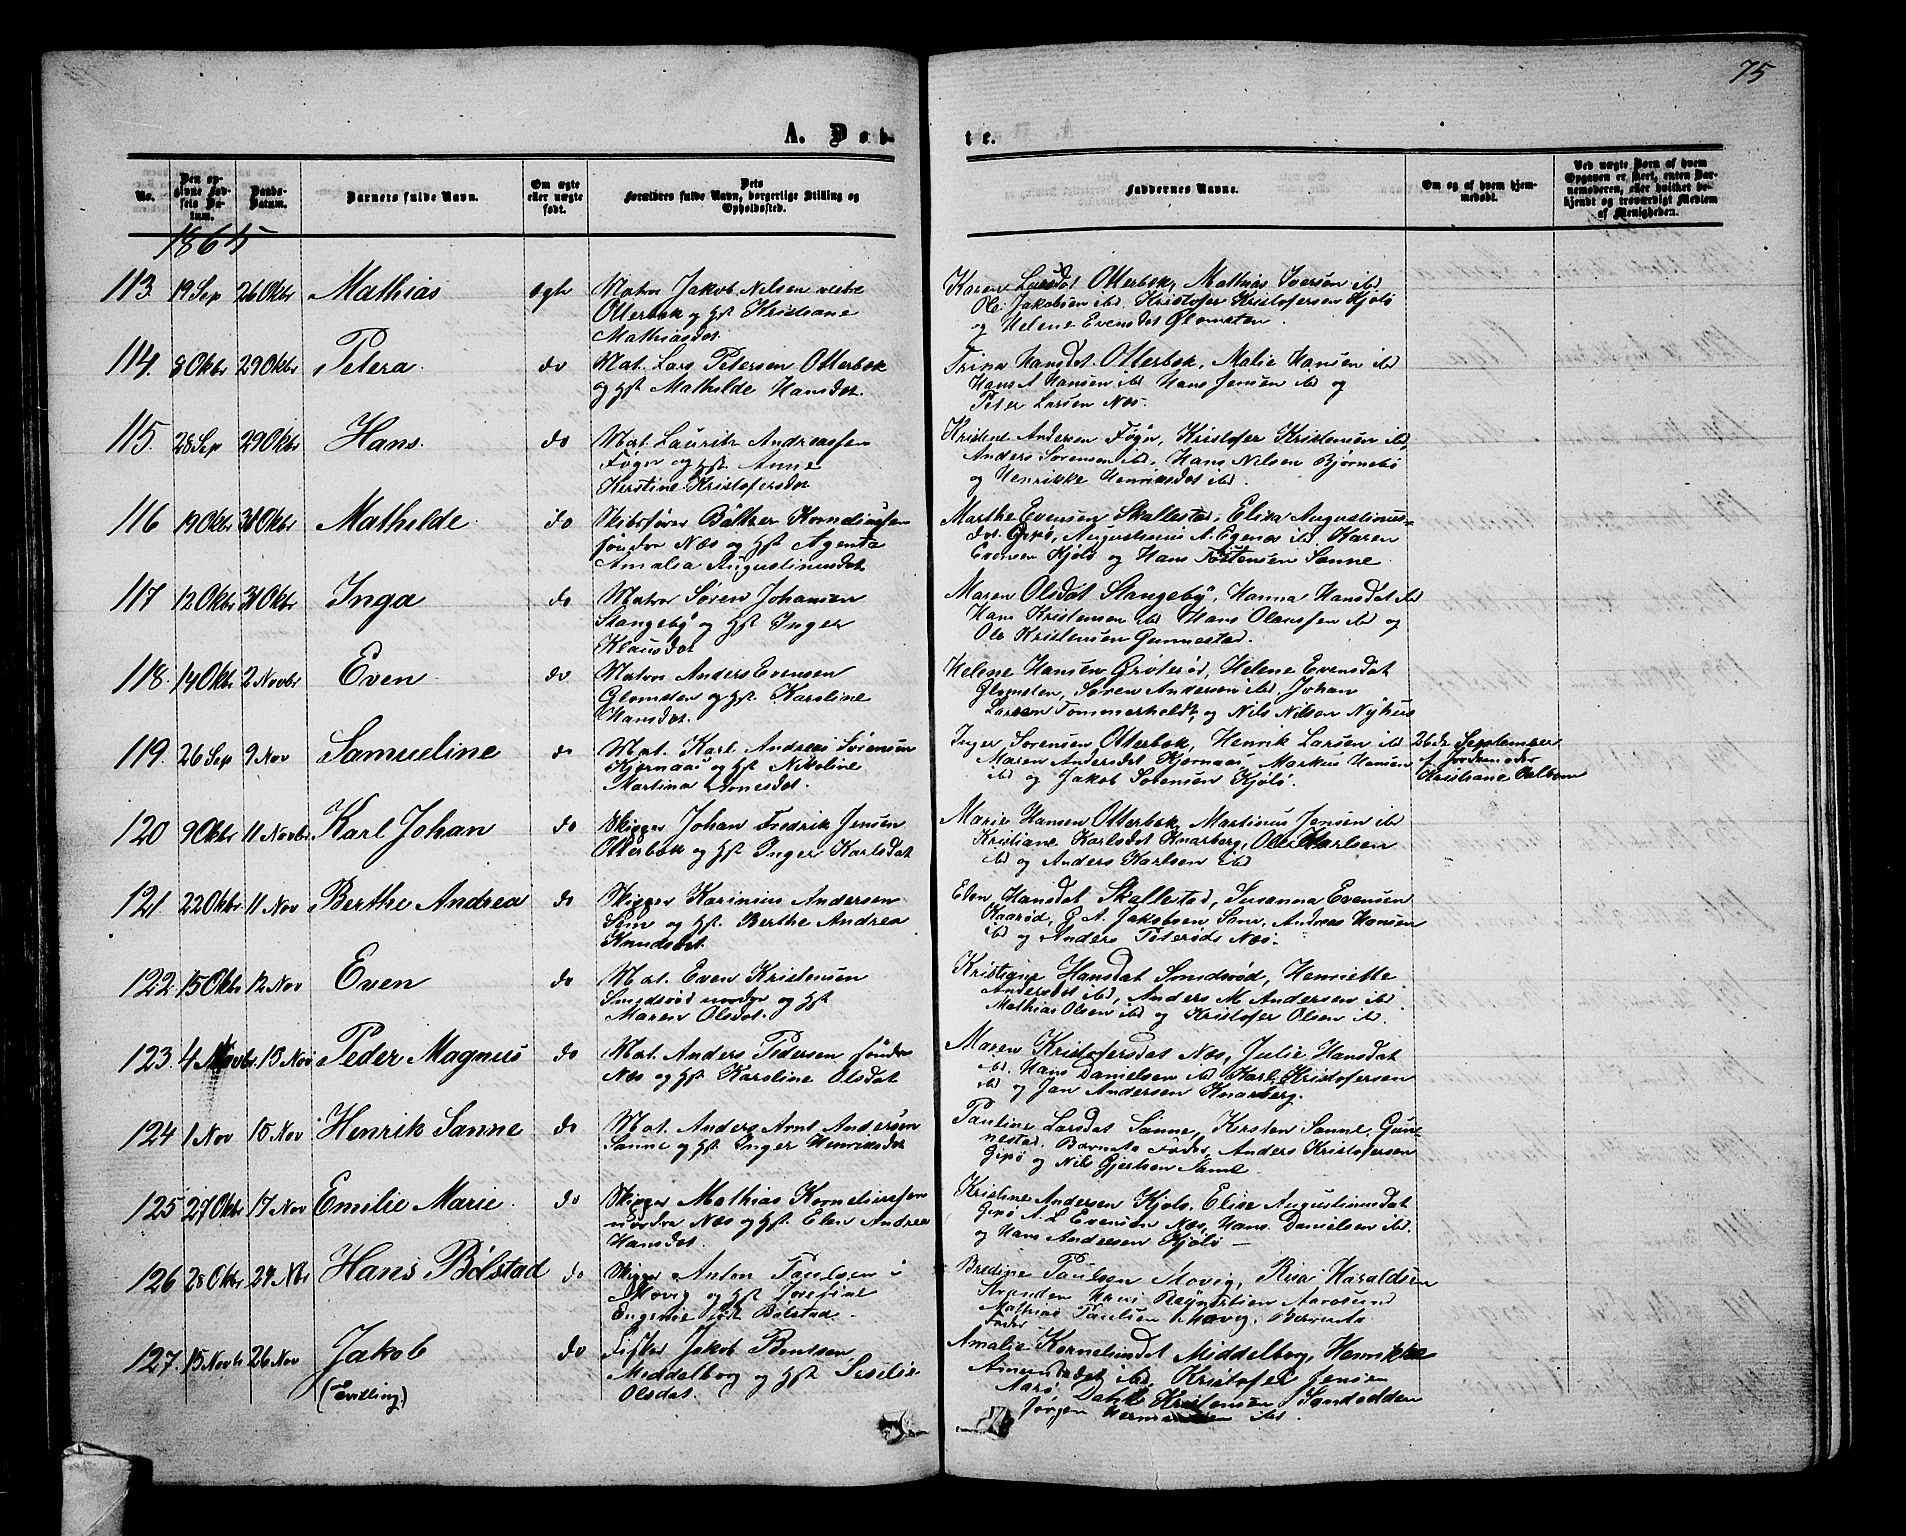 75
A. Døb-
te.
No.
Den opgivne Fødsels Datum.
Daabs-Datum.
Barnets fulde Navn.
Om ægte eller uægte født.
Dets Forældres fulde Navn, borgerlige Stilling og Opholdssted.
Faddernes Navne.
Om og af hvem hjemmedøbt.
Ved uægte Børn af hvem Opgaven er skeet, enten Barnemoderen, eller hvilket bekjendt og troværdigt Medlem af Menigheden.
1865
113. 19 Sep 26 Oktbr Mathias ægte
Matros Jakob Nilsen
Otterbek og Hst Kristiane
Mathiasdat.
Karen Otterbek, Mathias Iversen ibd
Ole Jakobsen ibd Kristofer Kristofersen Kjølø
og Helene Evensdat Glomsten.
114. 8 Oktbr 29 Oktbr Petera do
Mat. Lars Petersen Otterbek
og Hst Mathilde Hansdat.
Trina Hansdat Otterbek, Malie Hansen ibd
Hans A Hansen ibd Hans Jensen ibd og
Peter Larsen Næs.
115. 28 Sep 29 Oktbr Hans. do
Mat. Laurits Andreassen
og Hst. Anne
Kirstine Kristofersdat
Kristine Andersen Kristofer Kristensen ibd,
Anders Sørensen ibd, Hans Nilsen Bjørnebø
og Henrikke Henriksdat ibd.
116 19 Oktbr Oktbr Mathilde do
Skibsfører Baltzer Korneliussen
søndre Næs og Hst Agente
Amalia Augustinusdat.
Marthe Evensen Skallestad, Elisa Augustinus-
dat. Gipø, Augustinius A. Egenæs ibd, Karen
Evensen Kjølø og Hans Tostensen Sanne.
117 12 Oktbr 31 Oktbr Inga do
Matros Søren Johansen
Stangeby og Hst Inger
Klausdat
Maren Olsdat Stangeby, Hanna Hansdat ibd
Hans Kristensen ibd Hans Olaussen ibd og
Ole Kristensen Gunnestad.
118. 14 Oktbr 2 Novbr Even do
Matros Anders Evensen
Glomsten og Hst. Karoline
Hansdat.
Helene Hansen Grøterød, Helene Evensdat
Glomsten, Søren Andersen ibd, Johan
Larsen Tommerholdt, og Nils Nilsen Nyhus
119. 26 Sep 9 Nov Samueline do
Mat. Karl Andreas Sørensen
Kjernaas og Hst Nikoline
Martina Arnesdat.
Inger Sørensen Otterbek, Henrik Larsen ibd
Maren Andersdat Kjernaas, Markus Hansen
ibd og Jakob Sørensen Kjølø.
26de September
af Jordemoder
Kristiane Aalbom
120 9 Oktbr 11 Novbr Karl Johan do
Skipper Johan Fredrik Jensen
Otterbek og Hst Inger Karlsdat
Marie Hansen Otterbek, Martinus Jensen ibd
Kristiane Karlsdat Knarberg, Ole Karlsen
ibd og Anders Karlsen ibd
121. 22 Oktbr. 11 Nov Berthe Andrea do
Skipper Karinius Andersen
Sem og Hst. Berthe Andrea
Knudsdat.
Elen Hansdat Skallestad, Susanna Evensen
Kaarød, P. A. Jakobsen Sem, Andreas Hansen
ibd og Anders Næs.
122. 15 Oktbr 12 Nov Even do
Mat. Even Kristensen
Smidsrød nordre og Hst
Maren Olsdat.
Hansdat Smidsrød, Henriette
Andersdat ibd, Anders M. Andersen ibd
Mathias Olsen ibd og Kristofer Olsen ibd.
123. 4 Novbr. 15 Nov Peder Magnus do
Mat. Anders Pedersen søndre
Næs og Hst Karoline Olsdat
Maren Kristofersdat Næs, Julie Hansdat
ibd. Hans Danielsen ibd Karl Kristofersen
ibd og Jan Andersen Knarberg.
124 1 Nov 15 Nov Henrik Sanne do
Mat. Anders Arnt Andersen
Sanne og Hst. Inger Henriksdat
Pauline Larsdat Sanne, Kirsten Sanne, Gun-
nestad. Barnets Fader, Anders Kristofersen
Gipø og Nils Gjertsen
125 27 Oktbr 17 Nov Emilie Marie do
Skipper Mathias Korneliussen
nordre Næs og Hst. Elen Andrea
Hansdat.
Kristine Andersen Kjølø, Elise Augustinusdat
Gipø A. L Evensen Næs, Hans Danielsen ibd.
og Hans Andersen Kjølø —
126 28 Oktbr 24 Nbr Hans Bølstad do
Skipper Anton Paulsen i
Movig og Hst Josefine
Eugenie født Bølstad.
Bredine Paulsen Movig, Haraldsen
Stranden Hans Aarøsund
Mathias Paulsen Movig, Barnets
Fader
127. 15 Novb 26 Nov Jakob do
(Tvilling)
Fisker Jakob Bentsen
Middelborg og Hst Sesilie
Olsdat.
Amalie Korneliusdat Middelborg, Henrikke
ibd. Kristofer Jensen
Aarø, Kristensen Sandodden
Jørgen Hermansen ibd.